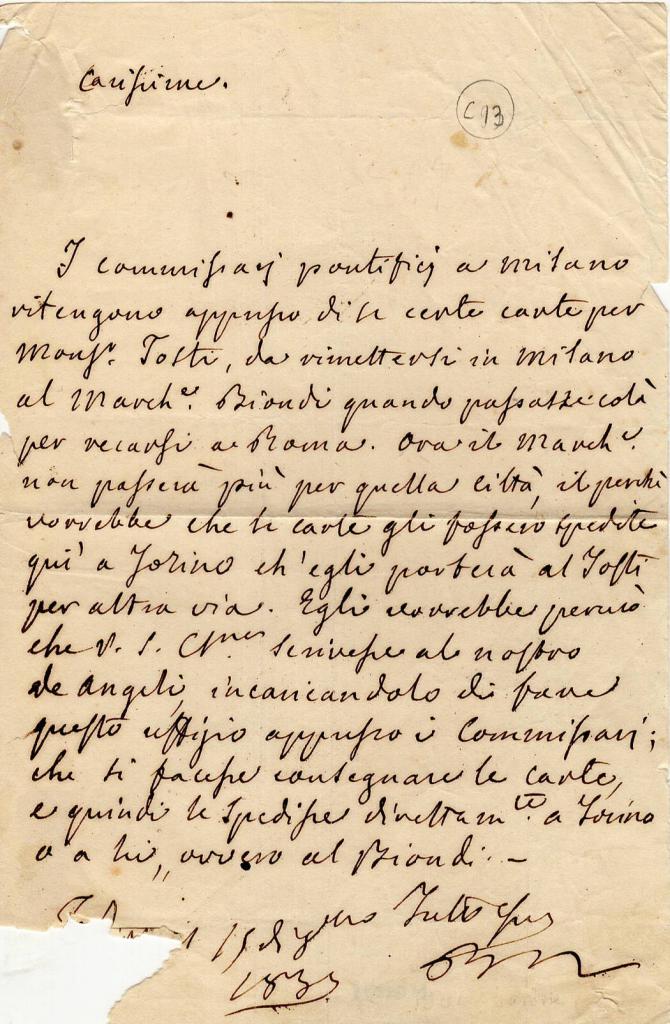 Carissimo.
C 93
I commissarj pontificj a Milano
ritengono appresso di se certe carte per
Monsr. Tosti, da rimettersi in Milano
al Marche. Biondi quando passasse colà
per recarsi a Roma. Ora il Marche.
non passerà più per quella città, il perchè
vorrebbe che le carte gli fossero spedite
quì a Torino ch'egli porterà al Tosti
per altra via. Egli vorrebbe perciò
che V. S. Cma. scrivesse al nostro
de Angeli, incaricandolo di fare
questo uffizio appresso i Commissarj;
che si facesse consegnare le carte,
e quindi le spedisse direttamte. a Torino
o a lei, ovvero al Biondi. –
15 Tutto suo
1833